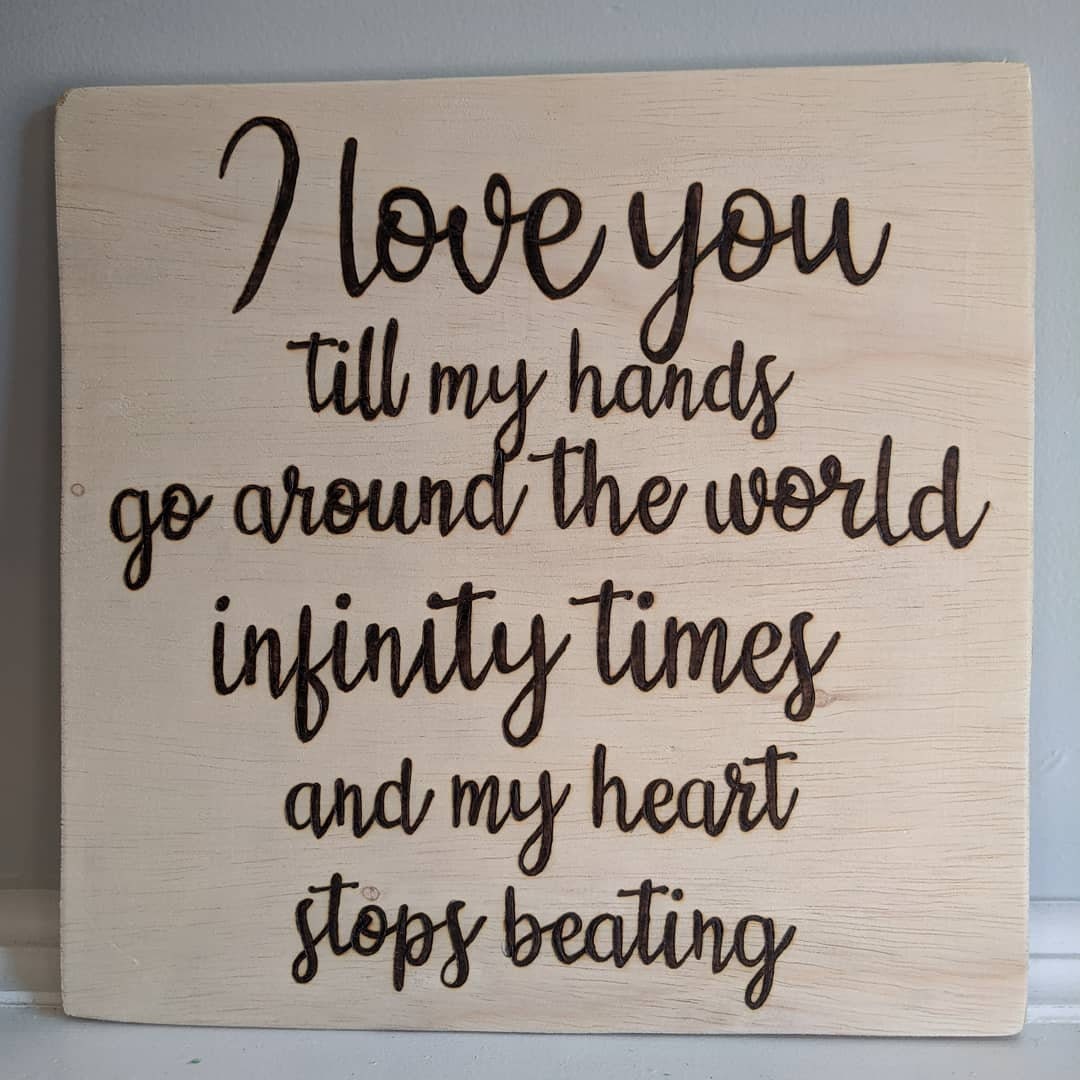 I love you
till my hands
go around the world
infinity times
and my heart
stops beating